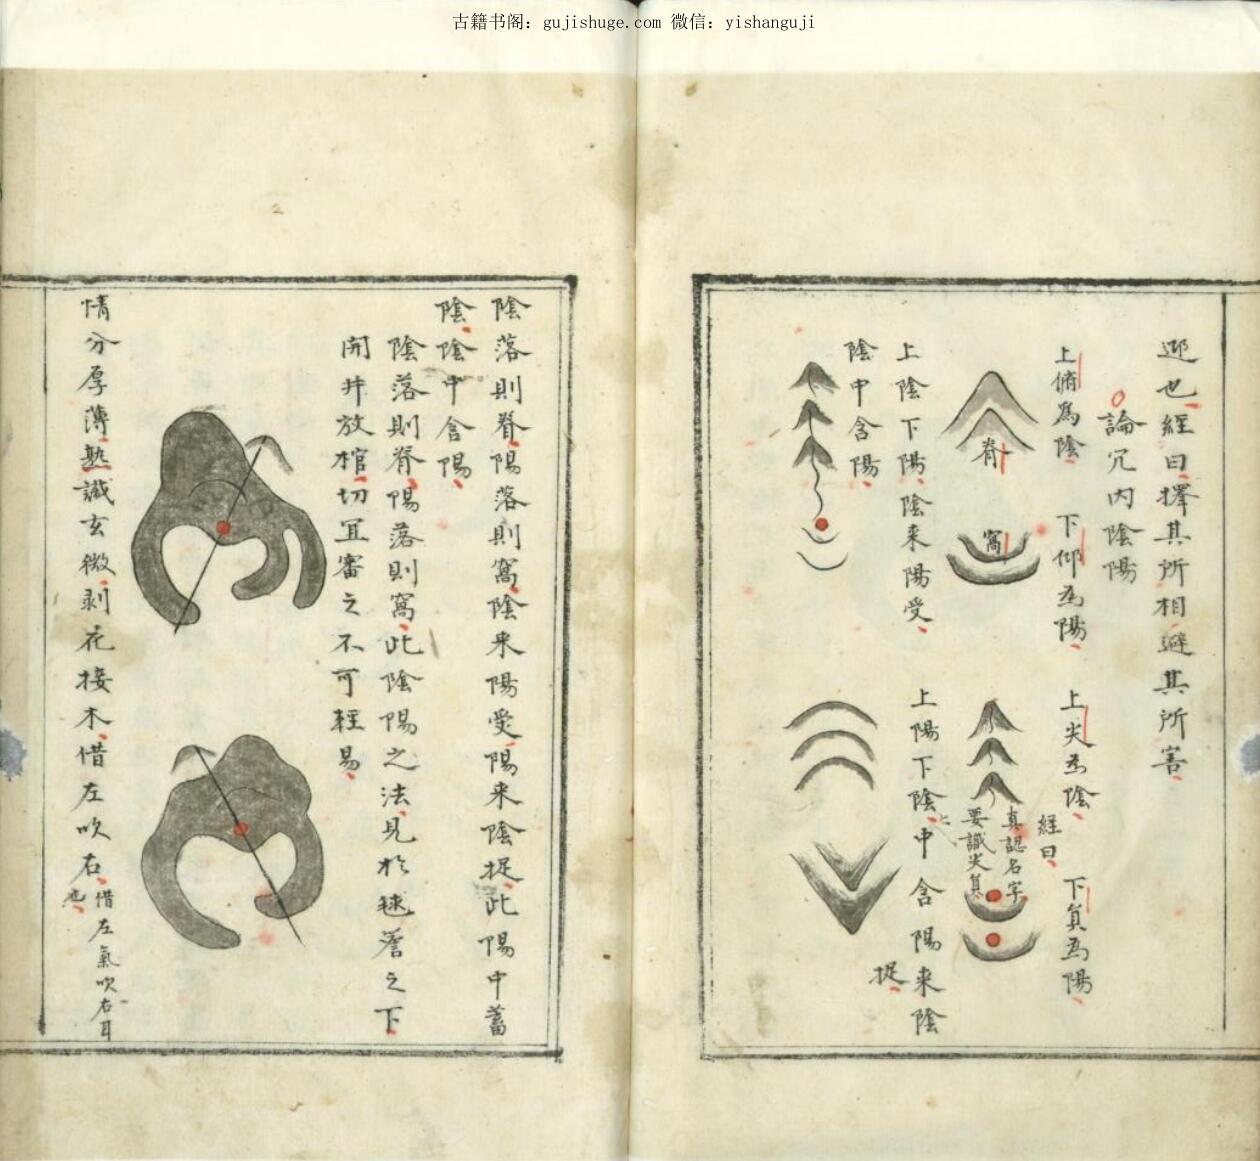 古籍书阁：gujishuge.com 微信：yishanguji
迎也、經曰、擇其所相、避其所害、
論冗内陰陽
上俯為陰、
下仰為陽、
上尖為陰、
下負為陽、
脊
窩
經曰、
真認名字
要識尖負
上陰下陽、陰来陽受、
陰中含陽、
上陽下陰、中含陽来陰
捉、
陰落則脊、陽落則窩、陰来陽受、陽来陰捉、此陽中蓄
陰、陰中含陽、
陰落則脊、陽落則窩、此陰陽之法、見於毬簷之下、
開井放棺、切冝審之不可輕易、
情分厚薄、熟識玄微、剥花接木、借左吹右、借左氣吹右耳
也、